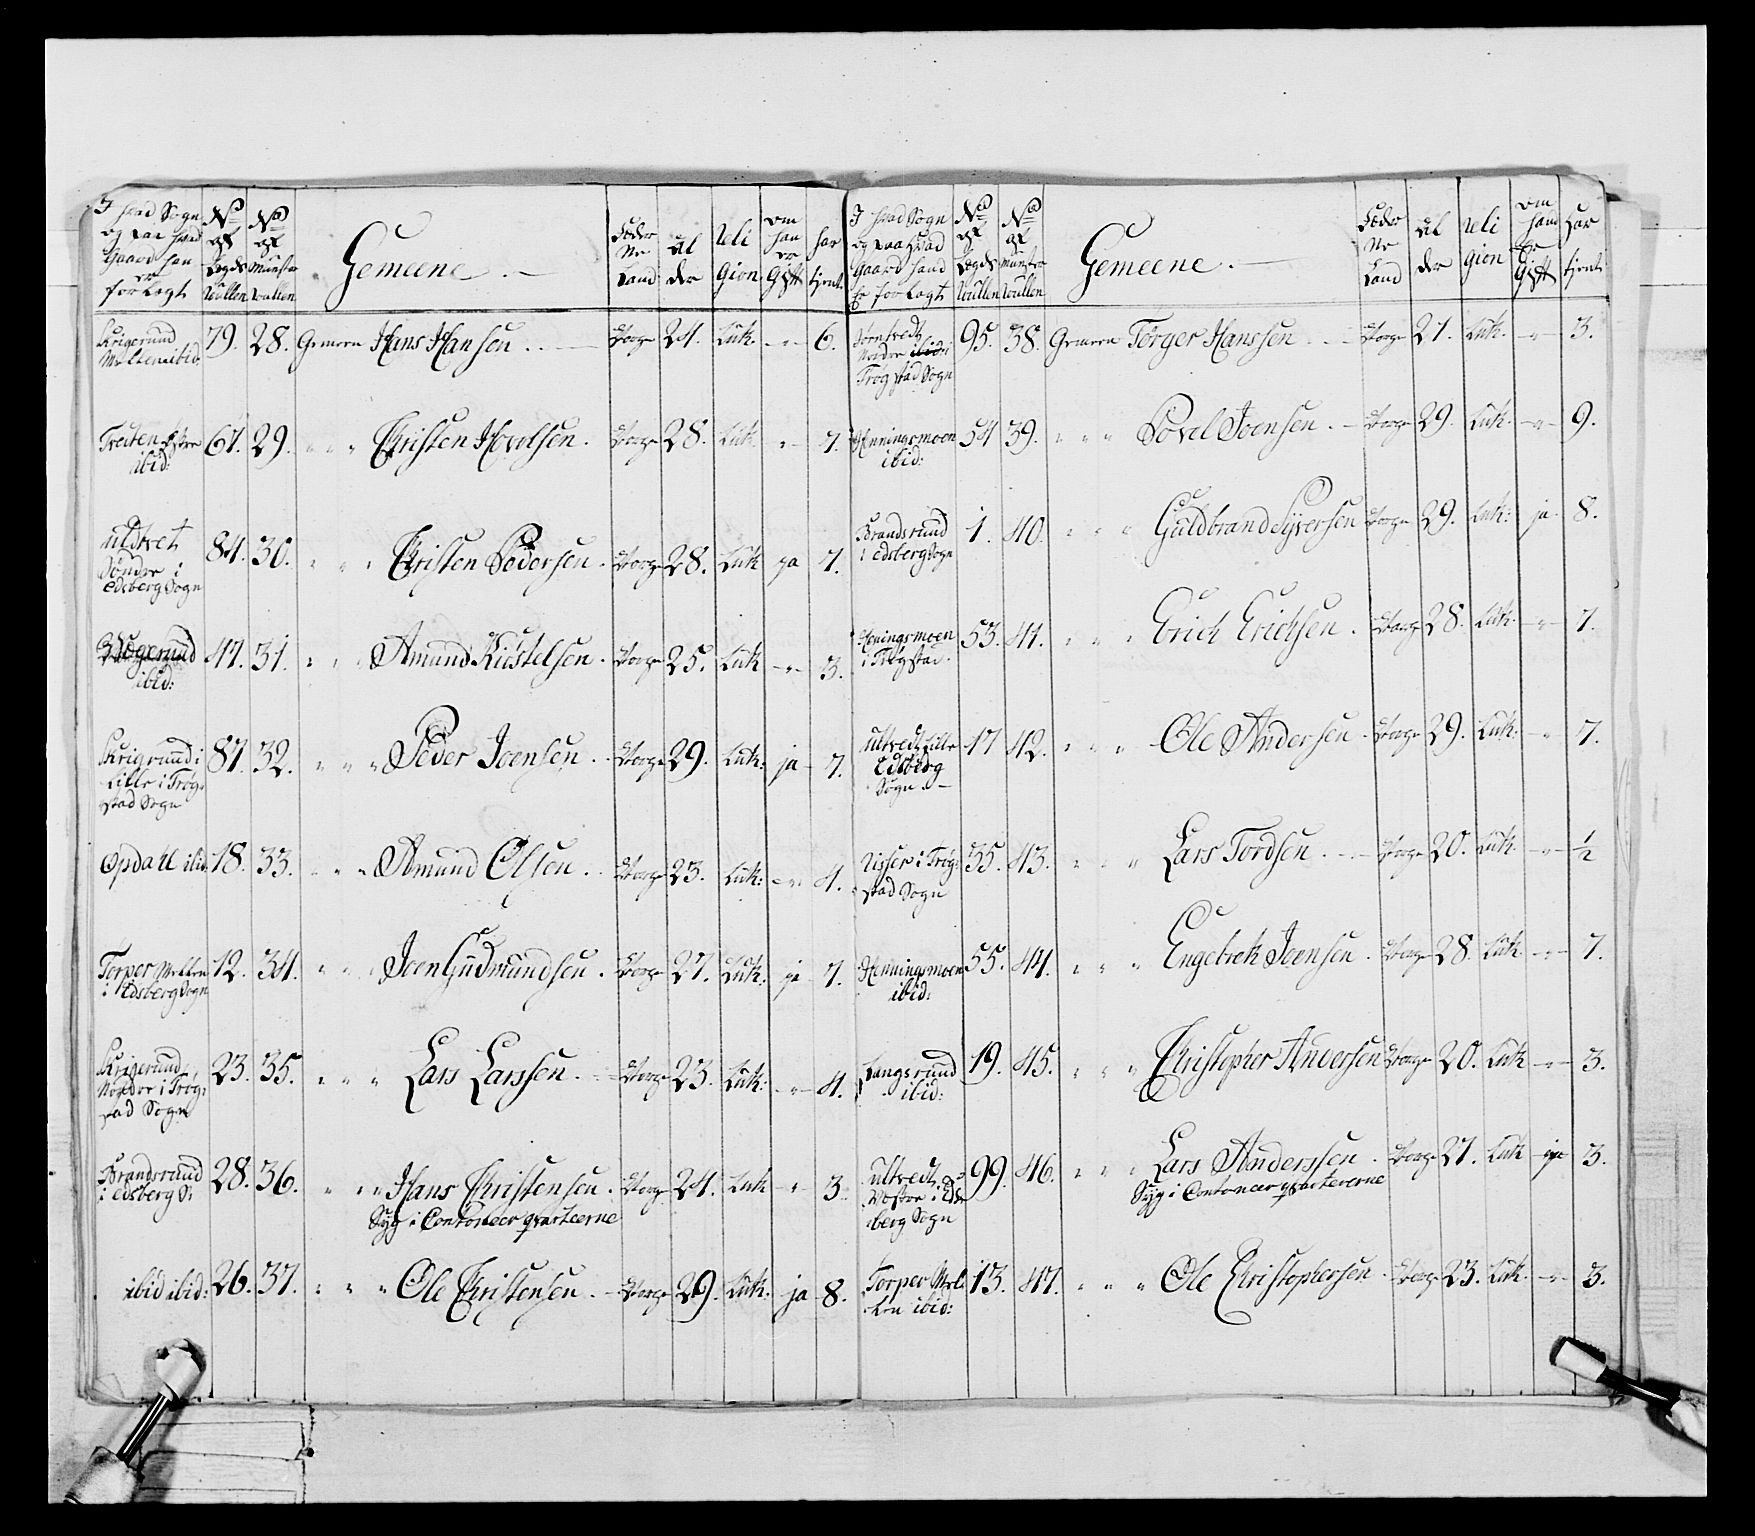 I hvad Sogn og paa hvad Gaard han er forlagt | No af Lægds Rullen | No af Munster Rullen | Gemeene. | Føder Ne Land | Al der | Reli gion | om han er Gift | har tjent
Krigsrund Mellem ibid: 79. 28. Gemeen Hans Hansen. Norge 24. Luth. - " - 6.
Træiten Østre ibid: 67. 29. " " " Christen Hovelsen. Norge 28. Luth. " - 7.
Ultvet Søndre i Edsberg Sogn 84. 30. " " " Christen Pedersen. Norge 28. Luth ja 7.
ibid: 47. 31. " " " Amund Kiøstelsen. Norge 25. Luth - " - 3.
Krigsrund Lille i Trøgstad Sogn 87. 32. " " " Peder Joensen. Norge 29. Luth: ja 7.
Opdahl ibid: 18. 33. " " " Amund Olsen. Norge 23. Luth: - " - 4.
Torper Mellem i Edsberg Sogn 12. 34. " " " Joen Gudmundsen. Norge 27. Luth: ja 7.
Krigsrund Nordre i Trøgstad Sogn 23. 35. " " " Lars Larssen. Norge 23. Luth: - " - 4.
Brandsrund i Edsberg S: 28. 36. " " " Hans Christensen. Norge 24. Luth " 3.
Syg i Contoneer qvarteerne
ibid ibid: 26. 37. " " " Ole Christensen. Norge 29. Luth: ja 8.
I hvad Sogn og paa Hvad Gaard hand Er forlagt | No af Lægds Rullen | No af Munster Rullen | Gemeene. | Føder Ne Land | Al der | Reli gion | om hand Er Gift | Har tjent
Nordre Trøgstad Sogn 95. 38. Gemeen Torger Hanssen. Norge 27. Luth. - " - 3.
Henningsmoen ibid: 54 39. " " " Povel Joensen. Norge 29. Luth. - " - 9.
Brandsrund i Edsberg Sogn 1. 40. " " " Guldbrand Syversen Norge 29. Luth: ja 8.
Heningsmoen i Trøgstad. 53. 41. " " " Erich Erichsen. Norge 28. Luth. - " - 7.
Ultvedt Lille Edsberg Sogn. 17 42. " " " Ole Andersen. Norge 29. Luth: - " 7.
Risser i Trøgstad Sogn 35. 43. " " " Lars Tordsen. Norge 20. Luth. - " - 1/2
Henningsmoen ibid: 55. 44. " " " Engebret Joensen. Norge 28. Luth. - " - 7.
Langsrund ibid: 19. 45. " " " Christopher Andersen Norge 20. Luth - " - 3.
Ultvedt Vestre i Edsberg Sogn 99. 46. " " " Lars Anderssen. Norge 27. Luth ja 3.
Syg i Contoneer qvarteerne
Torper Mellem ibid: 13. 47. " " " Ole Christophersen Norge 23. Luth. - " - 3.